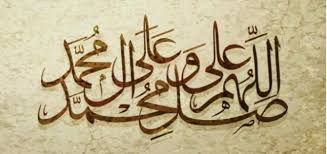 اللّٰهُمَّ صَلِّ عَلٰی مُحَمَّد وَ عَلٰی آلِ مُحَمَّد